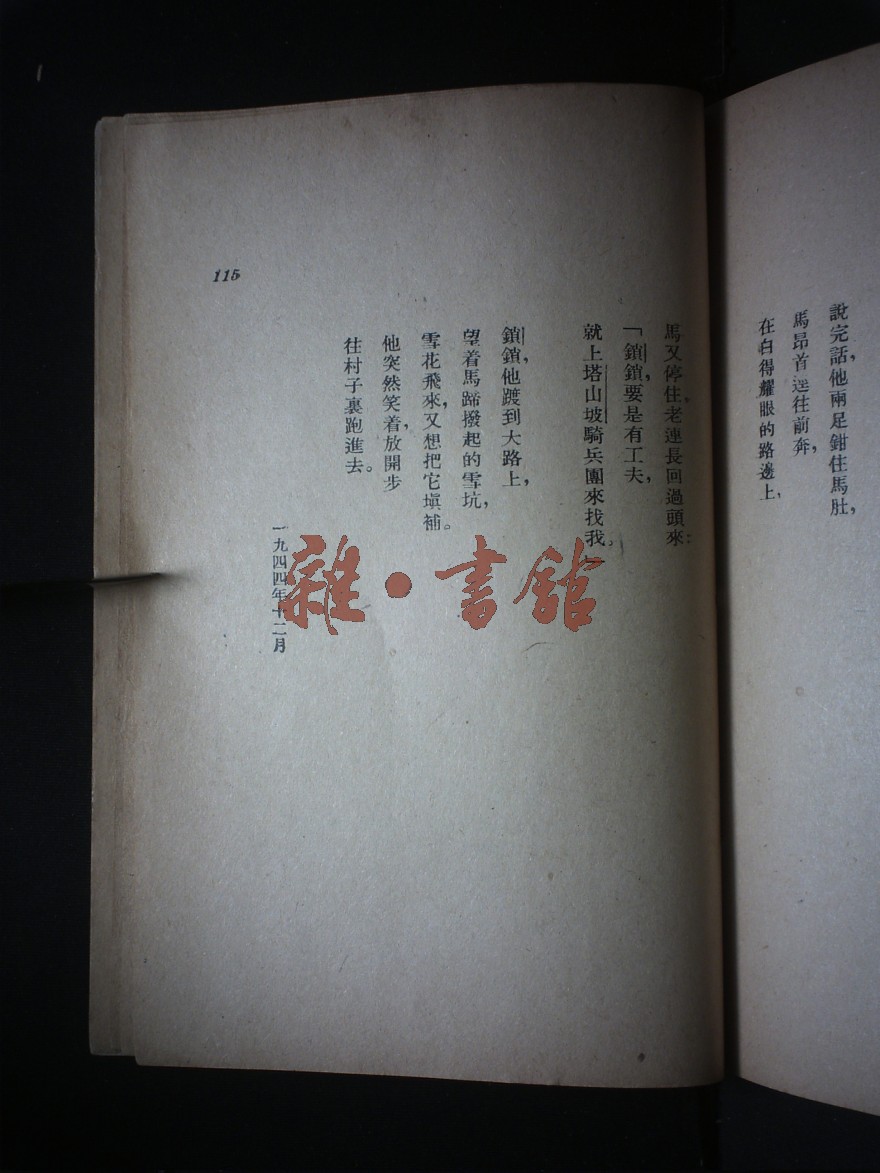 說完話，他兩足鉗住馬肚，
馬昂首迳往前奔，
在白得耀眼的路邊上，
馬又停住，老連長回過頭來：
「鎖鎖，要是有工夫，
就上塔山坡騎兵團來找我。」
鎖鎖，他踱到大路上，
望着馬蹄撥起的雪坑，
雪花飛來，又想把它塡補。
他突然笑着，放開步
往村子裏跑進去。
一九四四年十二月
115
雜·書館